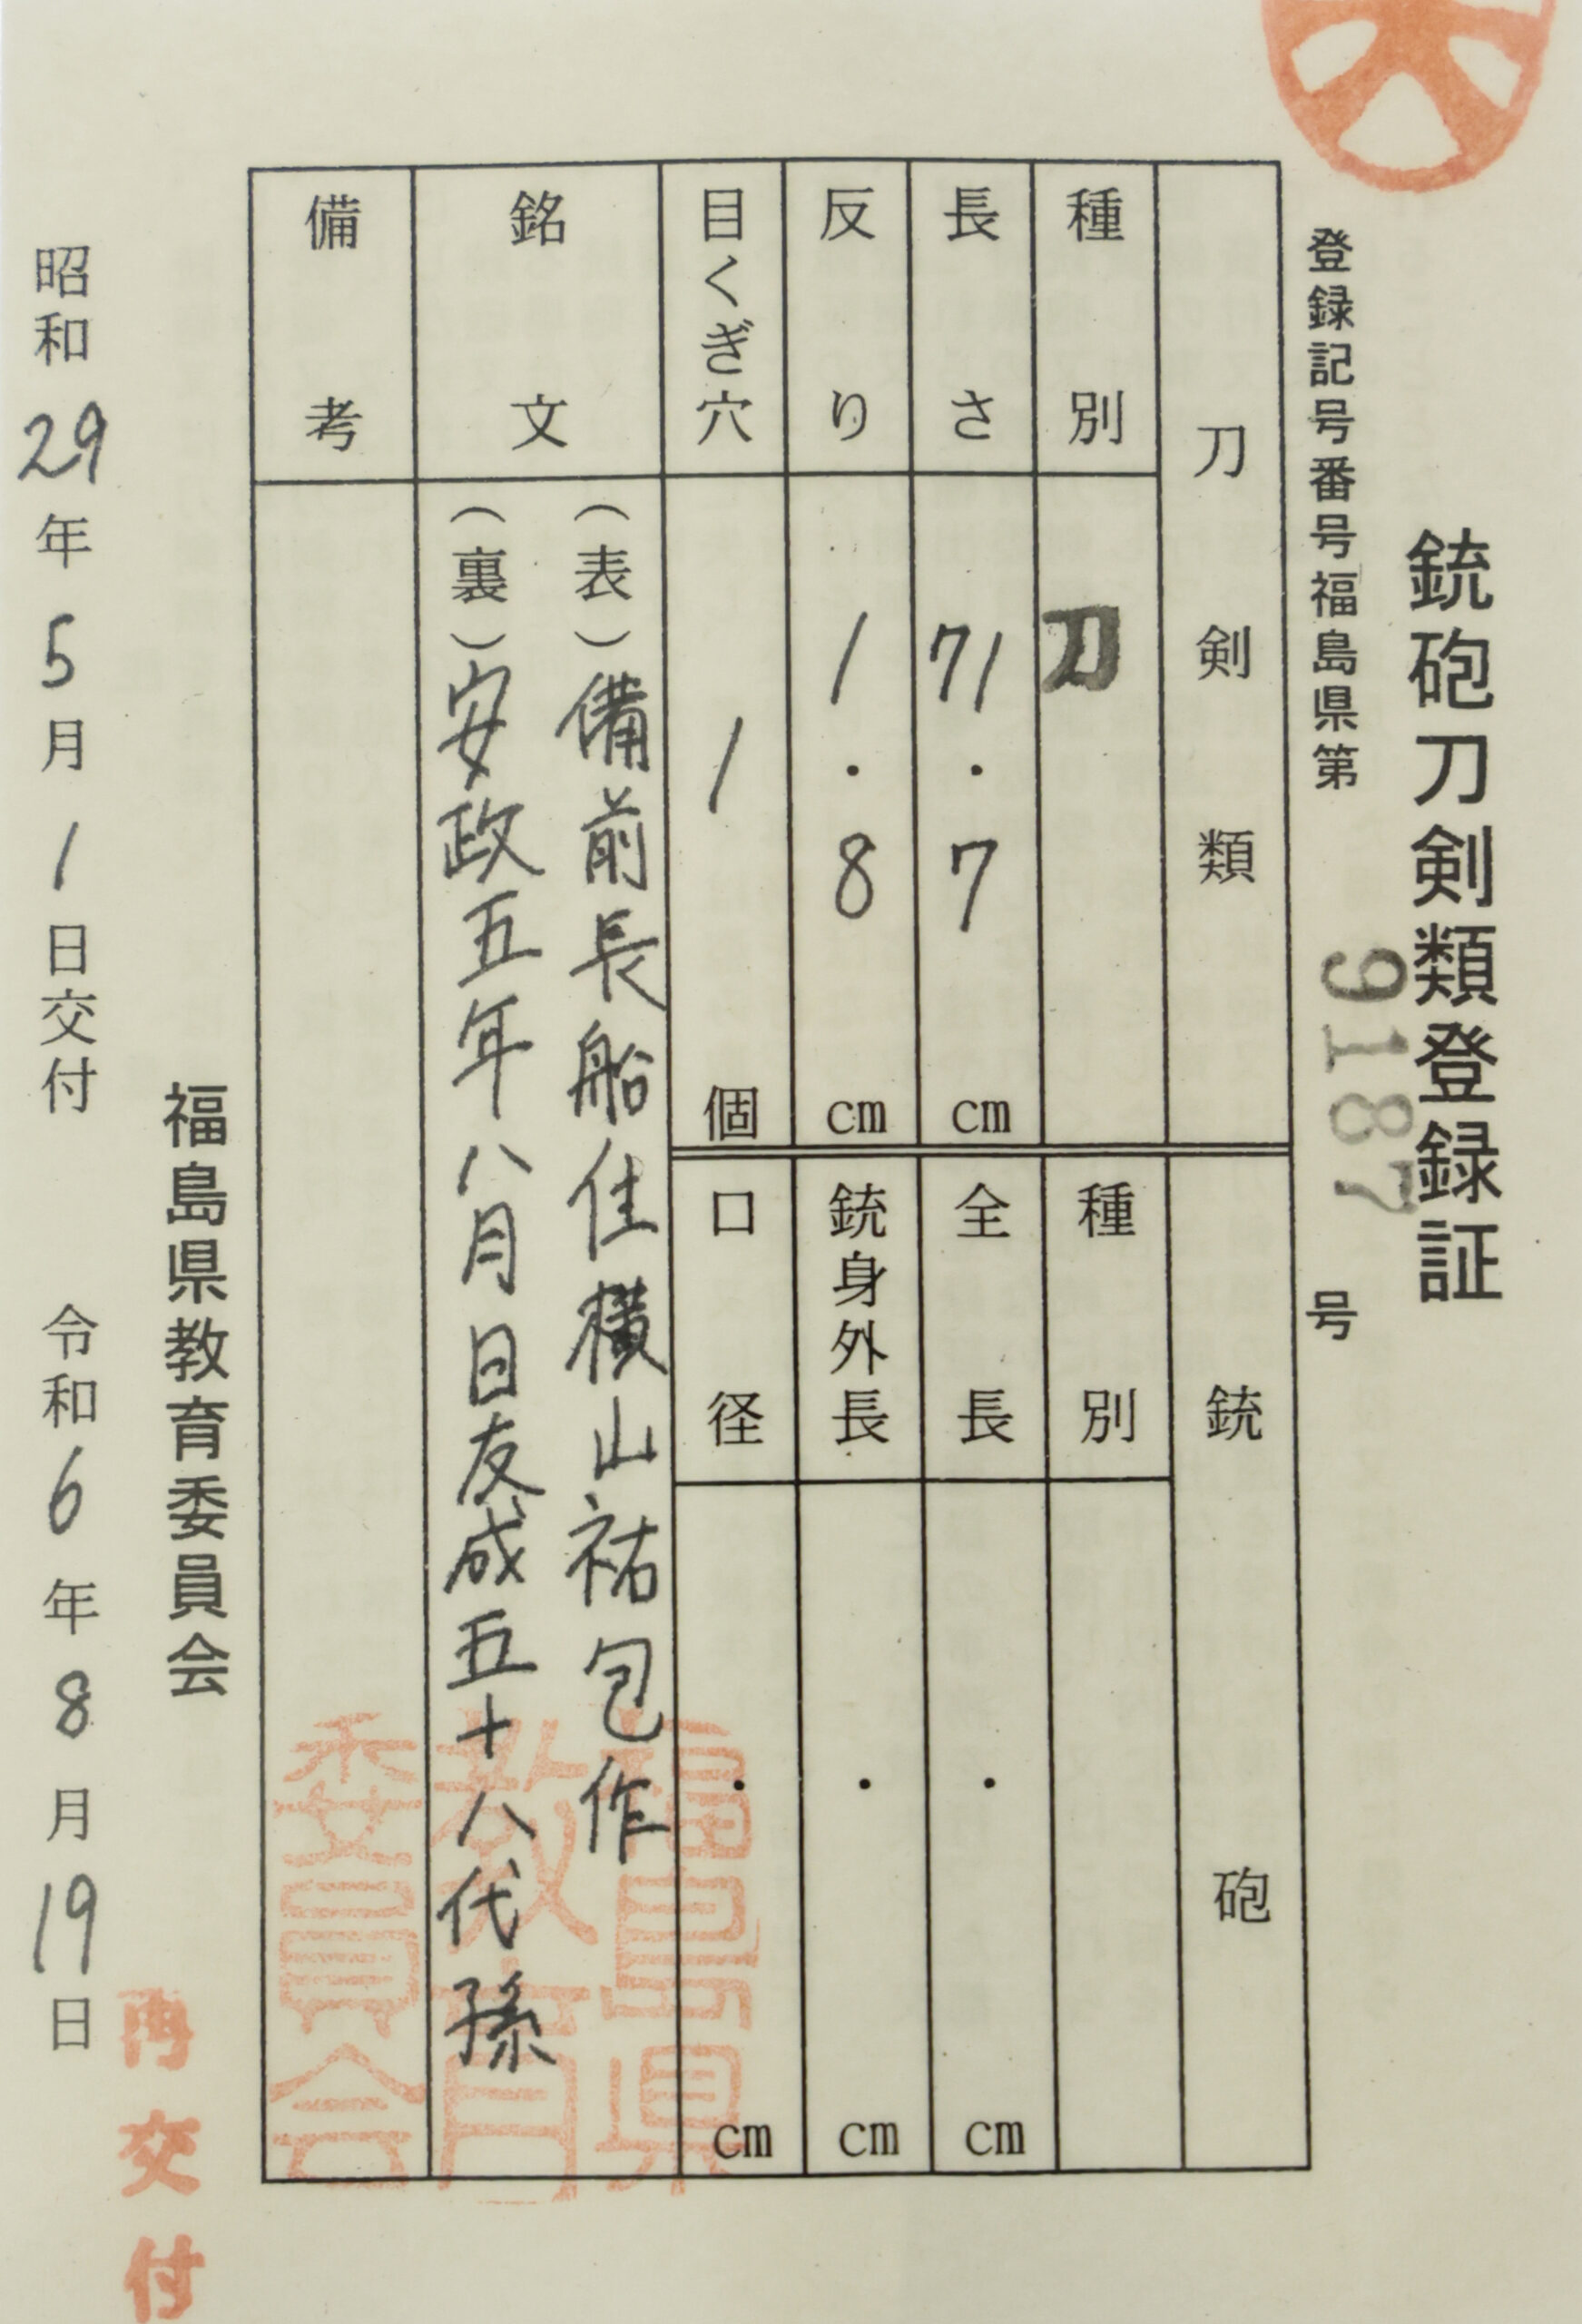 銃砲刀剣類登録証
登録記号番号福島県第 9187 号
刀剣類
種別 刀
長さ 71.7 cm
反り 1.8 cm
目くぎ穴 1 個
銃砲
種別
全長 . cm
銃身外長 . cm
口径 . cm
銘文
(表)備前長船住横山祐包作
(裏)安政五年八月日友成五十八代孫
備考
福島県教育委員会
福島県
教育
委員会
昭和29年5月1日交付 令和6年8月19日
再交付